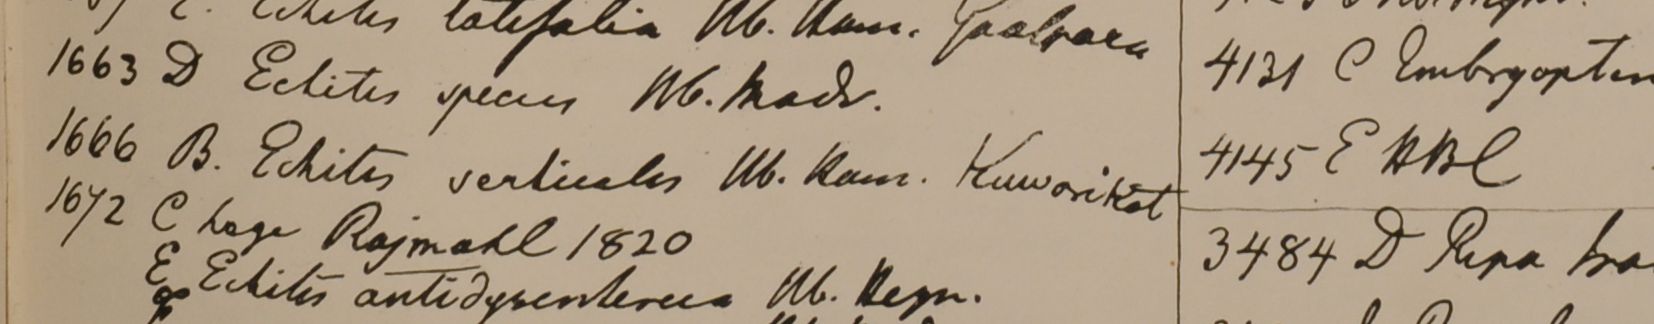 E. Echites latifolia Hb. Ham. Goalpara
1663 D Echites species Hb. Madr.
1666 B. Echites verticales Hb. Ham. Kuworikat
1672 C hage Rajmahl 1820
E Echites antidysenterica Hb. Heyn.
4131 C Embryopten
4145 E HBC
3484 D